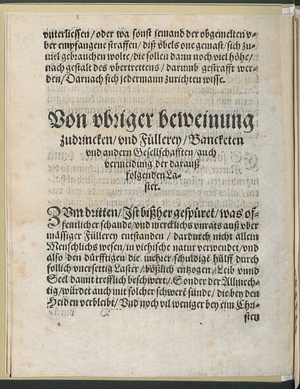 vnterliessen / oder wa sonst jemand der obgemelten v-
ber empfangene straffen / diß übels one gemast / sich zu-
uiel gebrauchen wolte / die sollen dann noch viel höhe /
nach gestalt des vbertrettens / darumb gestrafft wer-
den / Darnach sich jedermann zurichten wisse.
Von vbriger beweinung
zudrincken / vnd Füllerey / Bancketen
vnd andern Gesellschafften / auch
vermeidung der darauß
folgenden La-
ster.
ZVm dritten / Ist bißher gespüret / was of-
fentlicher schand / vnd mercklichs vnrats auß vber
mässiger Füllerey entstanden / dardurch nicht allein
Menschlichs wesen / in viehische natur verwendet / vnd
also den dürfftigen die schuldige hülff durch
sollich vnersettig Laster / bößlich entzogen / Leib vnnd
Seel damit trefflich beschwert / Sonder der Allmech-
tig / würdet auch mit solcher schwerē sünde / die bey den
Heiden verbleibt / Vnd noch vil weniger bey eim Chri-
sten